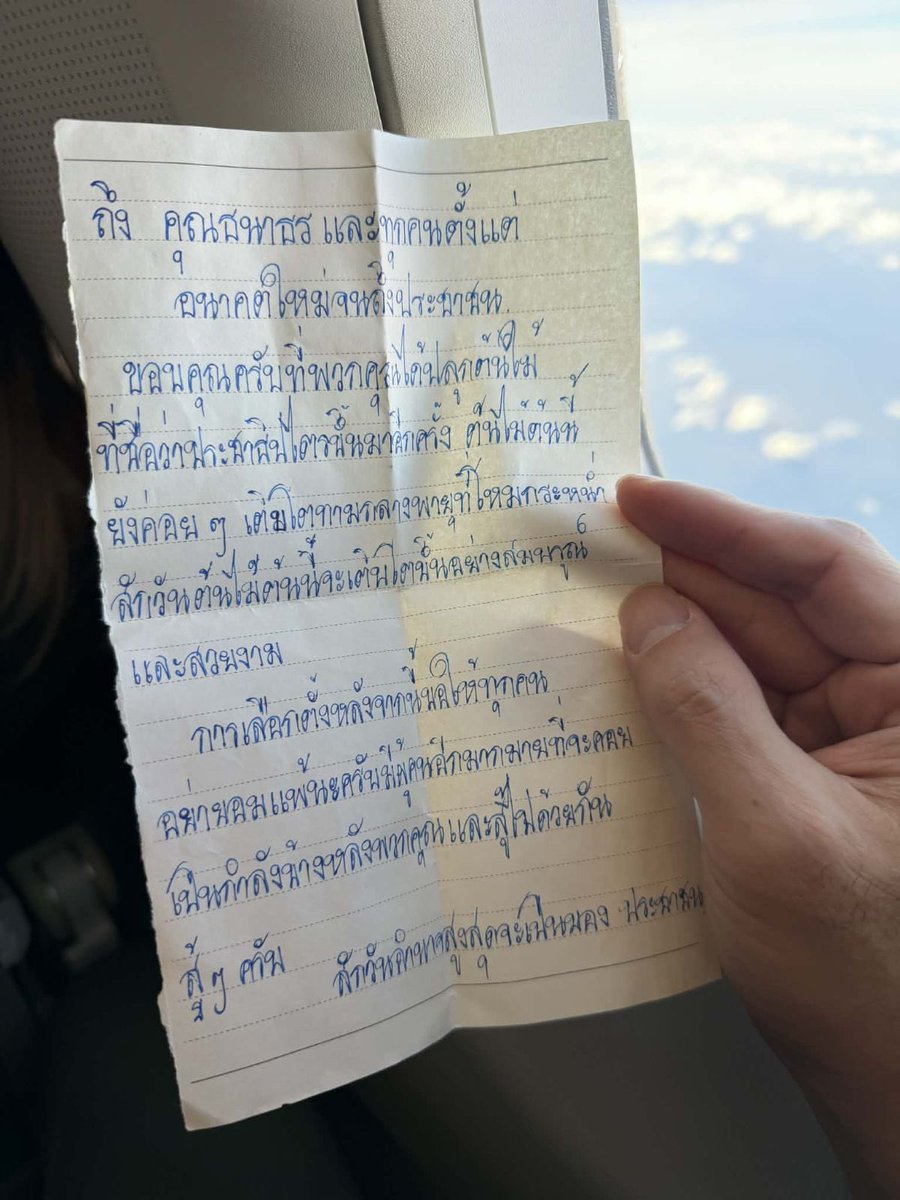 ถึง คุณธนาธร และทุกคนตั้งแต่
อนาคตใหม่จนถึงประชาชน.
ขอบคุณครับที่พวกคุณได้ปลูกต้นไม้
ที่ชื่อว่าประชาธิปไตยขึ้นมาอีกครั้ง ต้นไม้ต้นนี้
ยังค่อย ๆ เติบโตท่ามกลางพายุที่โหมกระหน่ำ
สักวันต้นไม้ต้นนี้จะเติบโตขึ้นอย่างสมบูรณ์
และสวยงาม
การเลือกตั้งหลังจากนี้ขอให้ทุกคน
อย่ายอมแพ้นะครับมีผู้คนอีกมากมายที่จะคอย
เป็นกำลังข้างหลังพวกคุณและสู้ไปด้วยกัน
สู้ ๆ ครับ สักวันอำนาจสูงสุดจะเป็นของ ประชาชน